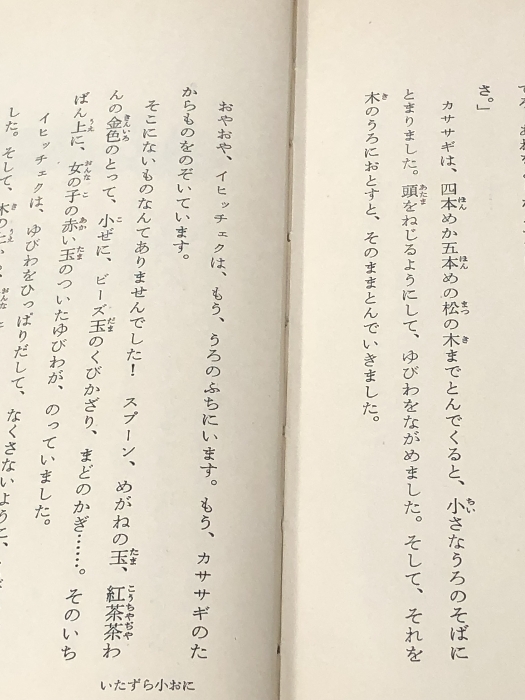 さ。」
カササギは、四本めか五本めの松の木までとんでくると、小さなうろのそばに
とまりました。頭をねじるようにして、ゆびわをながめました。そして、それを
木のうろにおとすと、そのままとんでいきました。
おやおや、イヒッチェクは、もう、うろのふちにいます。もう、カササギのた
からものをのぞいています。
そこにないものなんてありませんでした！　スプーン、めがねの玉、紅茶茶わ
んの金色のとって、小ぜに、ビーズ玉のくびかざり、まどのかぎ……。そのいち
ばん上に、女の子の赤い玉のついたゆびわが、のっていました。
イヒッチェクは、ゆびわをひっぱりだして、なくさないように、
した。そして、木の
いたずら小おに